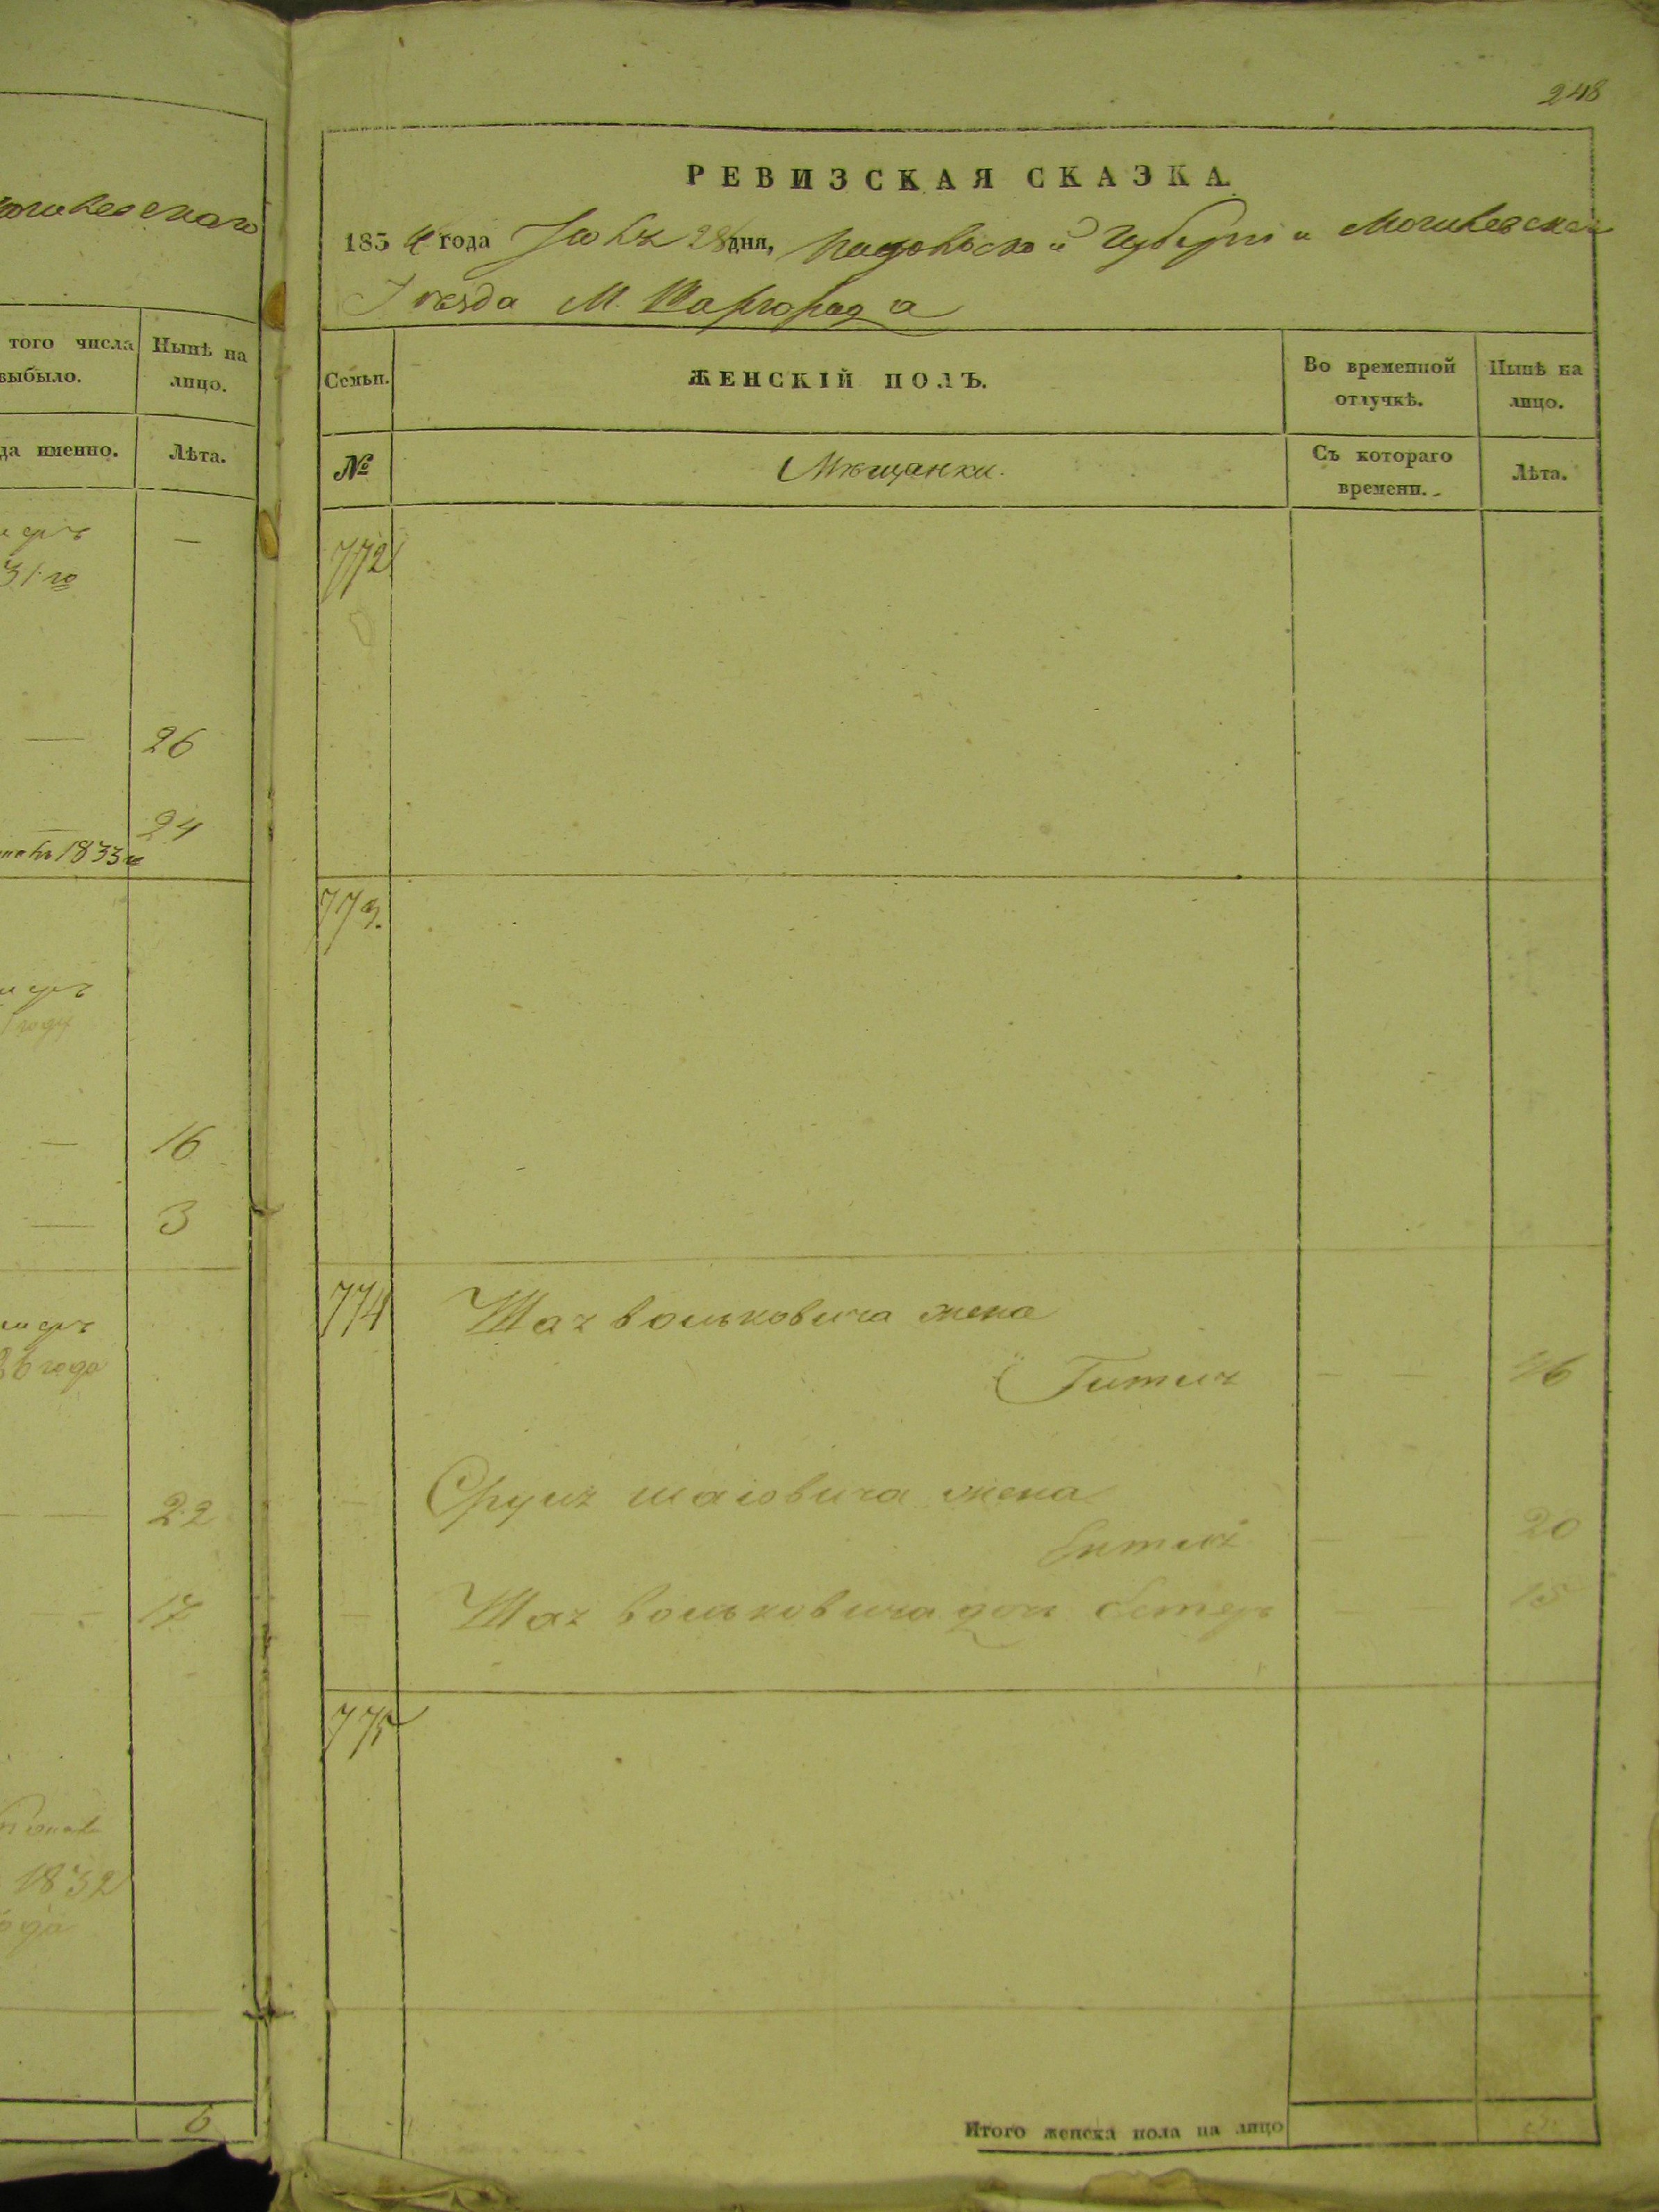 могилевскаго
того числа
выбыло.
Нынѣ на
лицо.
да именно.
Лѣта.
31го
26
24
1833
году
16
3
36 года
22
17
1832
года
6
248
РЕВИЗСКАЯ СКАЗКА.
1834 года Июля 28 дня, Подольской Губерніи Могилевскаго
Уезда М. Шаргорода
Семьи.
ЖЕНСКІЙ ПОЛЪ.
Во временной
отлучкѣ.
Нынѣ на
лицо.
№
Мѣщанки.
Съ котораго
времени.
Лѣта.
772
773.
774 Шая вольковича жена
Гитля 46
Сруля шаiовича жена
20
Шая вольковича доч Естер 15
775
Итого женска пола на лицо